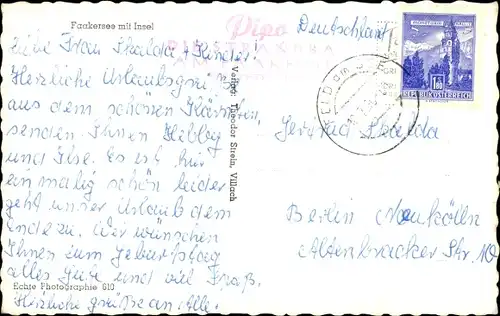 Faakersee mit Insel
Liebe Frau Skalda u. Kinder
Herzliche Urlaubsgrüße
aus dem schönen Kärnten,
senden Ihnen
und Ilse. Es ist hier
einmalig schön leider
geht unser Urlaub dem
Ende zu. Wir wünschen
Ihnen zum Geburtstag
alles Gute und viel Spaß.
Echte Photographie 610
Herzliche Grüße an Alle.
Verlag: Theodor Strein, Villach
Pipo
Deutschland
REPUBLIK ÖSTERREICH
1.80
Gertrud Skalda
Berlin Neukölln
Altenbracker Str. 10